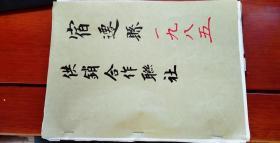 宿迁縣
一九八五
供銷合作聯社